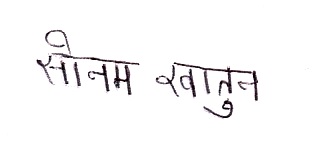 सोनम खातुन